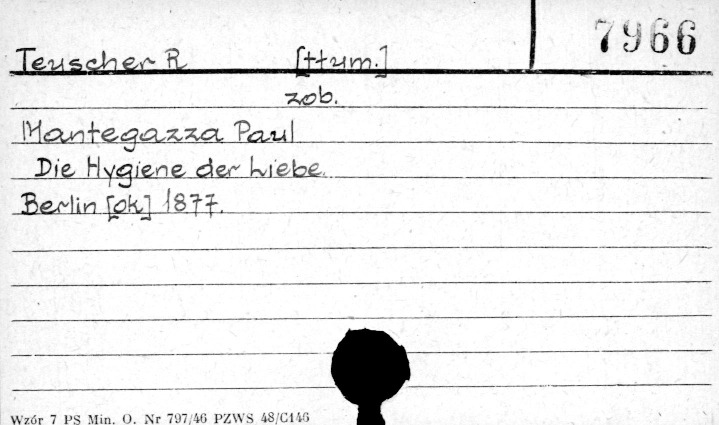 7966
Teuscher R [tłum.]
zob.
Mantegazza Paul
Die Hygiene der Liebe.
Berlin [ok] 1877.
Wzór 7 PS Min. O. Nr 797/46 PZWS 48/C146